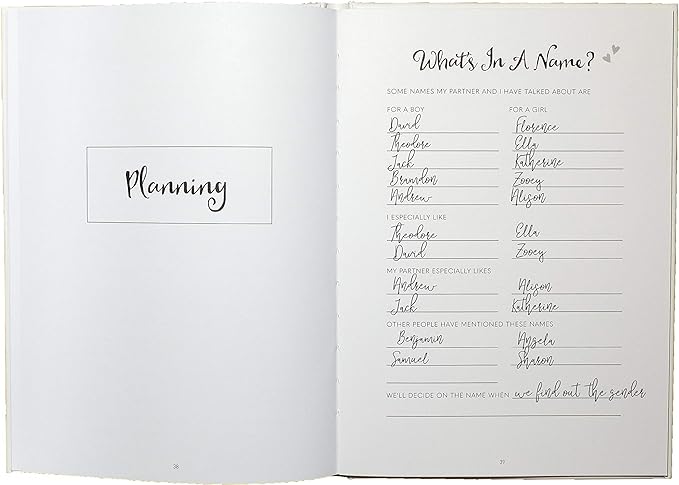 Planning
38
What's In A Name?
SOME NAMES MY PARTNER AND I HAVE TALKED ABOUT ARE
FOR A BOY FOR A GIRL
David Florence
Theodore Ella
Jack Katherine
Brandon Zooey
Andrew Alison
I ESPECIALLY LIKE
Theodore Ella
David Zooey
MY PARTNER ESPECIALLY LIKES
Andrew Alison
Jack Katherine
OTHER PEOPLE HAVE MENTIONED THESE NAMES
Benjamin Angela
Samuel Sharon
WE'LL DECIDE ON THE NAME WHEN we find out the gender
39